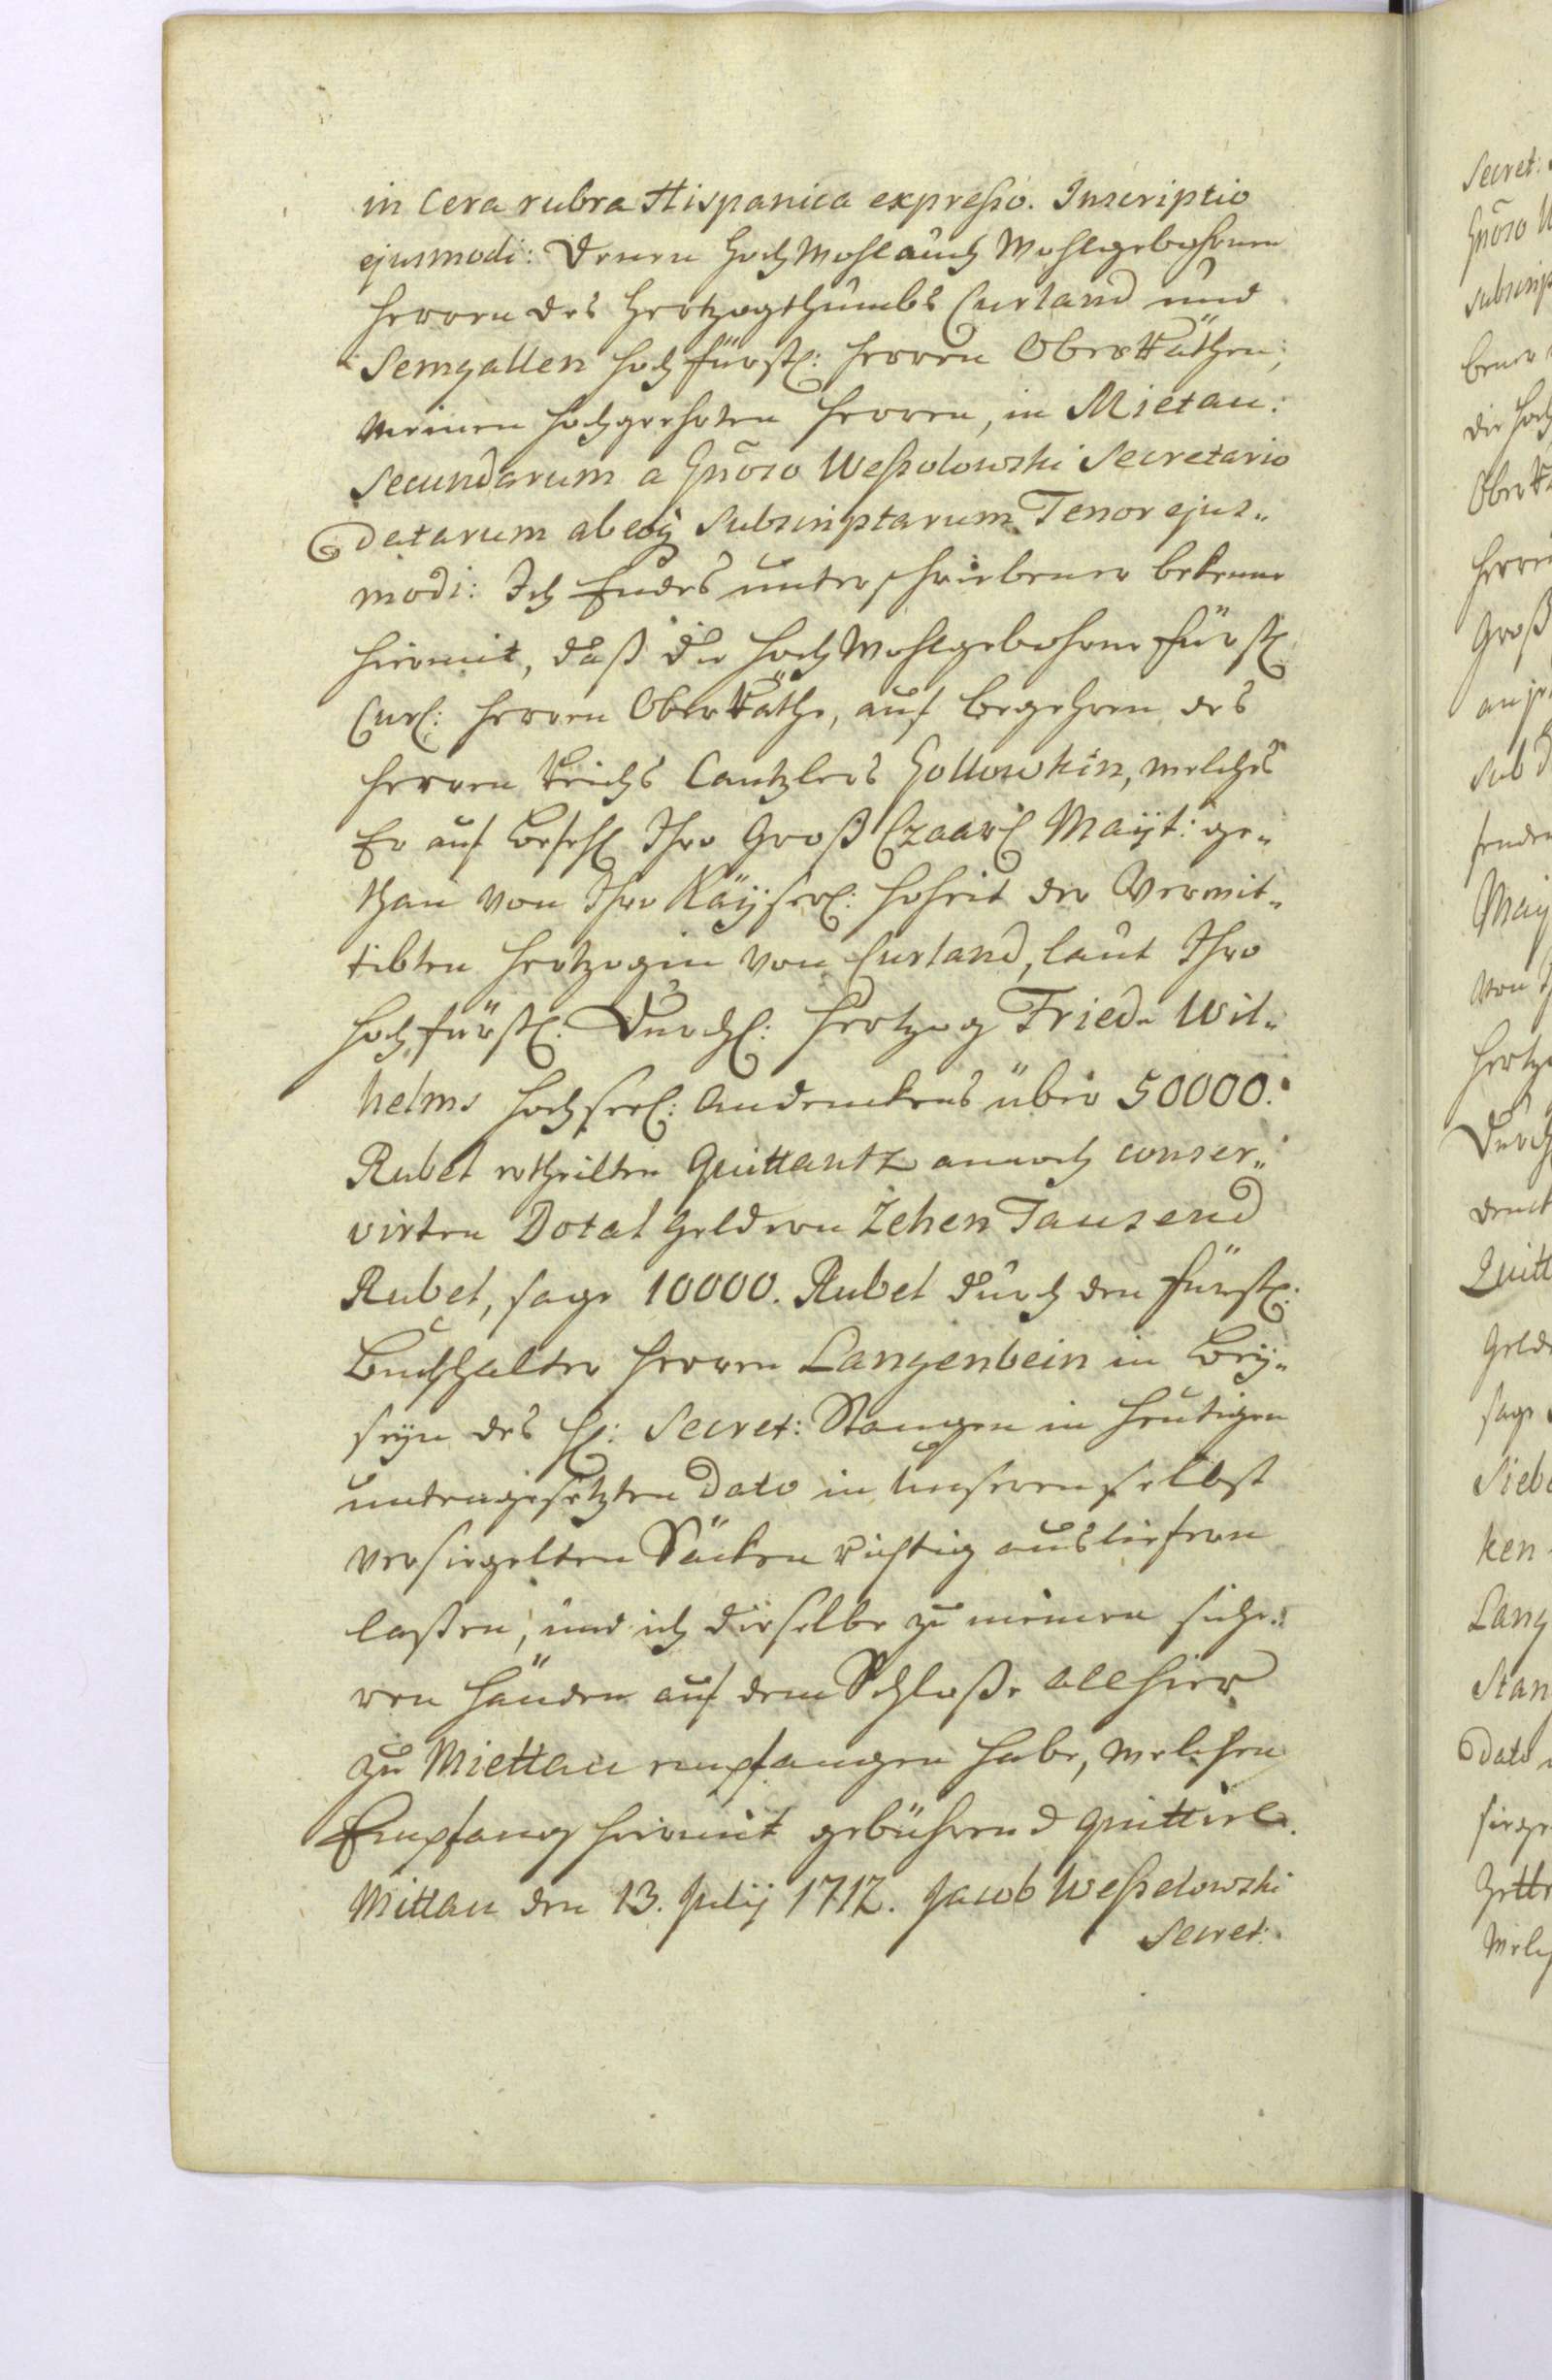 in Cera rubra Hispanica expresso. Inscriptio
ejusmodi: Denen HochWohl auch Wohlgebohrnen
Herren des Hertzogthumbs Curland und
Semgallen Hochfürstl: Herren OberRäthen,
Meinen Hochgeehrten Herren, in Mietau:
Secundarum a Gñoso Wessolowski Secretario
datarum ab eoq̃ subscriptarum Tenor ejus„
modi: Ich Endes unterschriebener bekenne
hiermit, daß die HochWohlgebohrne Fürstl
Curl: Herren OberRäthe, auf Begehren des
Herren Reichs Cantzlers Gollowkin, welches
Er auf Befehl Ihro Groß Czaarl Mayt: ge„
than von Ihro Kaÿserl: Hoheit der Verwit„
tibten Hertzogin von Curland, laut Ihro
Hochfürstl: Durchl: Hertzog Fried„ Wil„
helms Hochseel: Andenckens über 50000.
Rubel ertheilten Quittantz annoch conser„
virten Dotal Geldern Zehen Tausend
Rubel, sage 10000. Rubel durch den Fürstl:
Buchhalter Herren Langenbein in Beÿ„
seÿn des H: Secret: Stangen in heutigen
untengesetzten Dato in unseren selbst
versiegelten Säcken richtig ausliefern
laßen, und ich dieselbe zu meinen siche„
ren Händen auf dem Schloße allhier
zu Miettau empfangen habe, welchen
Empfang hiermit gebührend quittire.
Mittau den 13. Julij 1712. Jacob Wesselowski
Secret: